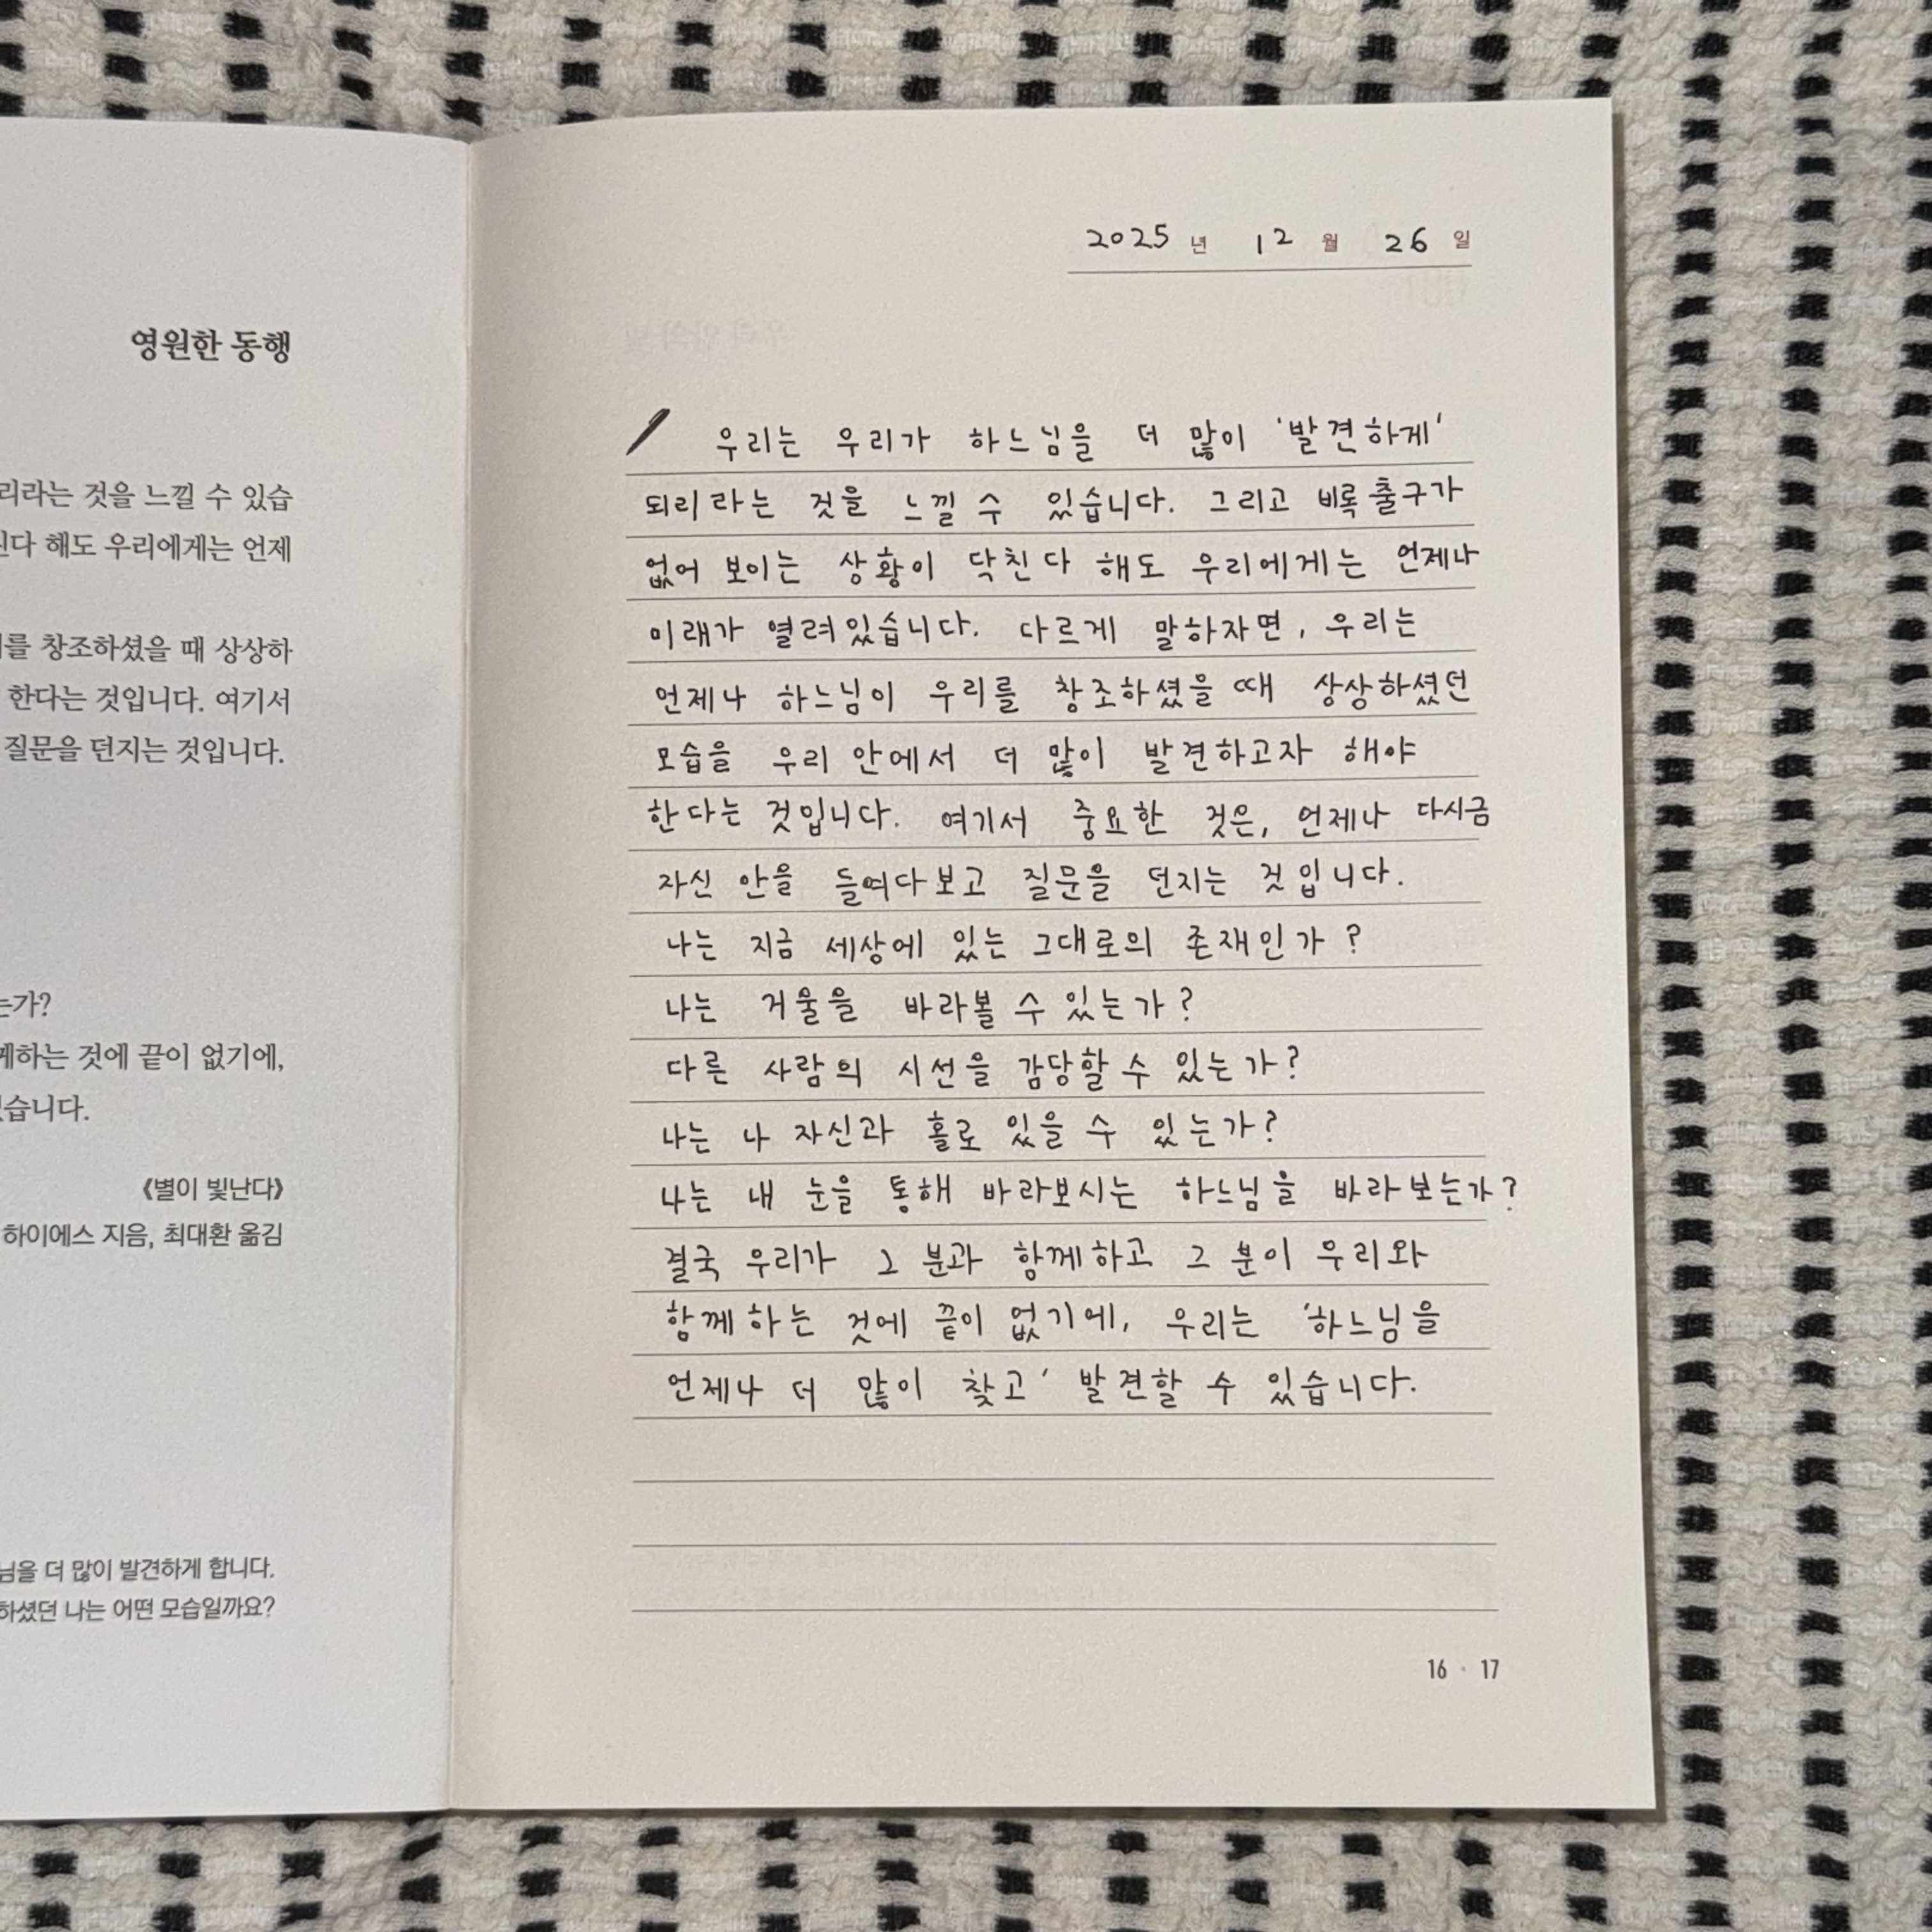 영원한 동행
리라는 것을 느낄 수 있습
다 해도 우리에게는 언제
를 창조하셨을 때 상상하
한다는 것입니다. 여기서
질문을 던지는 것입니다.
는가?
께하는 것에 끝이 없기에,
습니다.
《별이 빛난다》
하이에스 지음, 최대환 옮김
님을 더 많이 발견하게 합니다.
하셨던 나는 어떤 모습일까요?
2025 년 12 월 26 일
우리는 우리가 하느님을 더 많이 '발견하게'
되리라는 것을 느낄 수 있습니다. 그리고 비록 출구가
없어 보이는 상황이 닥친다 해도 우리에게는 언제나
미래가 열려있습니다. 다르게 말하자면, 우리는
언제나 하느님이 우리를 창조하셨을 때 상상하셨던
모습을 우리 안에서 더 많이 발견하고자 해야
한다는 것입니다. 여기서 중요한 것은, 언제나 다시금
자신 안을 들여다보고 질문을 던지는 것입니다.
나는 지금 세상에 있는 그대로의 존재인가?
나는 거울을 바라볼 수 있는가?
다른 사람의 시선을 감당할 수 있는가?
나는 나 자신과 홀로 있을 수 있는가?
나는 내 눈을 통해 바라보시는 하느님을 바라보는가?
결국 우리가 그 분과 함께하고 그 분이 우리와
함께하는 것에 끝이 없기에, 우리는 '하느님을
언제나 더 많이 찾고' 발견할 수 있습니다.
16 · 17